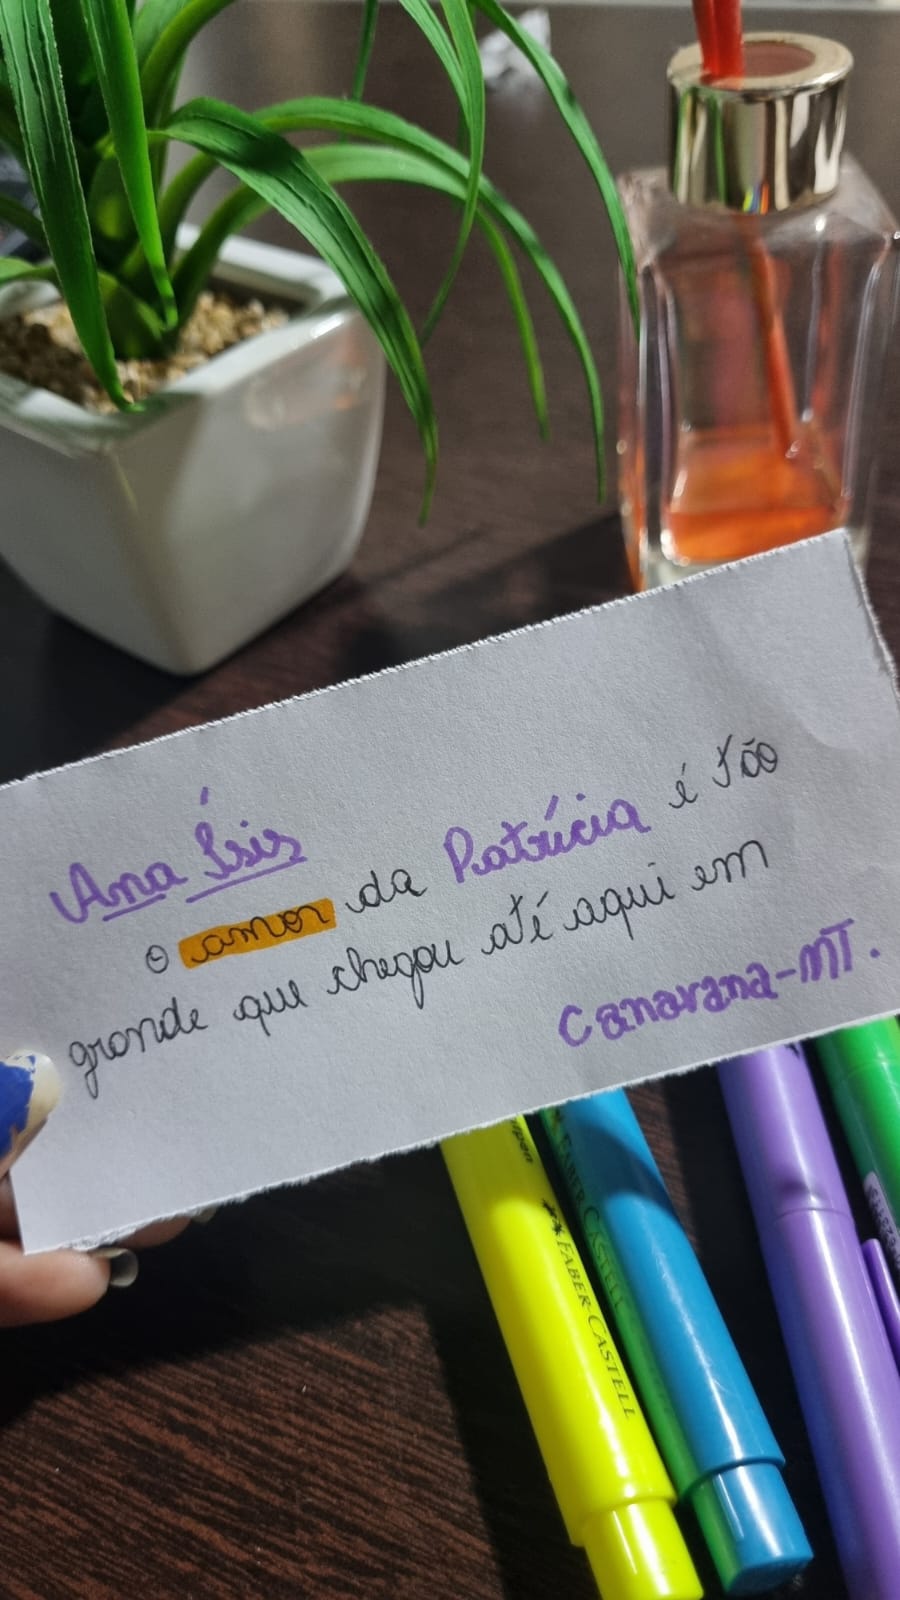 Ana Ísis
o amor da Patrícia é tão
grande que chegou até aqui em
Canarana-MT.
FABER-CASTELL
FABER-CASTELL